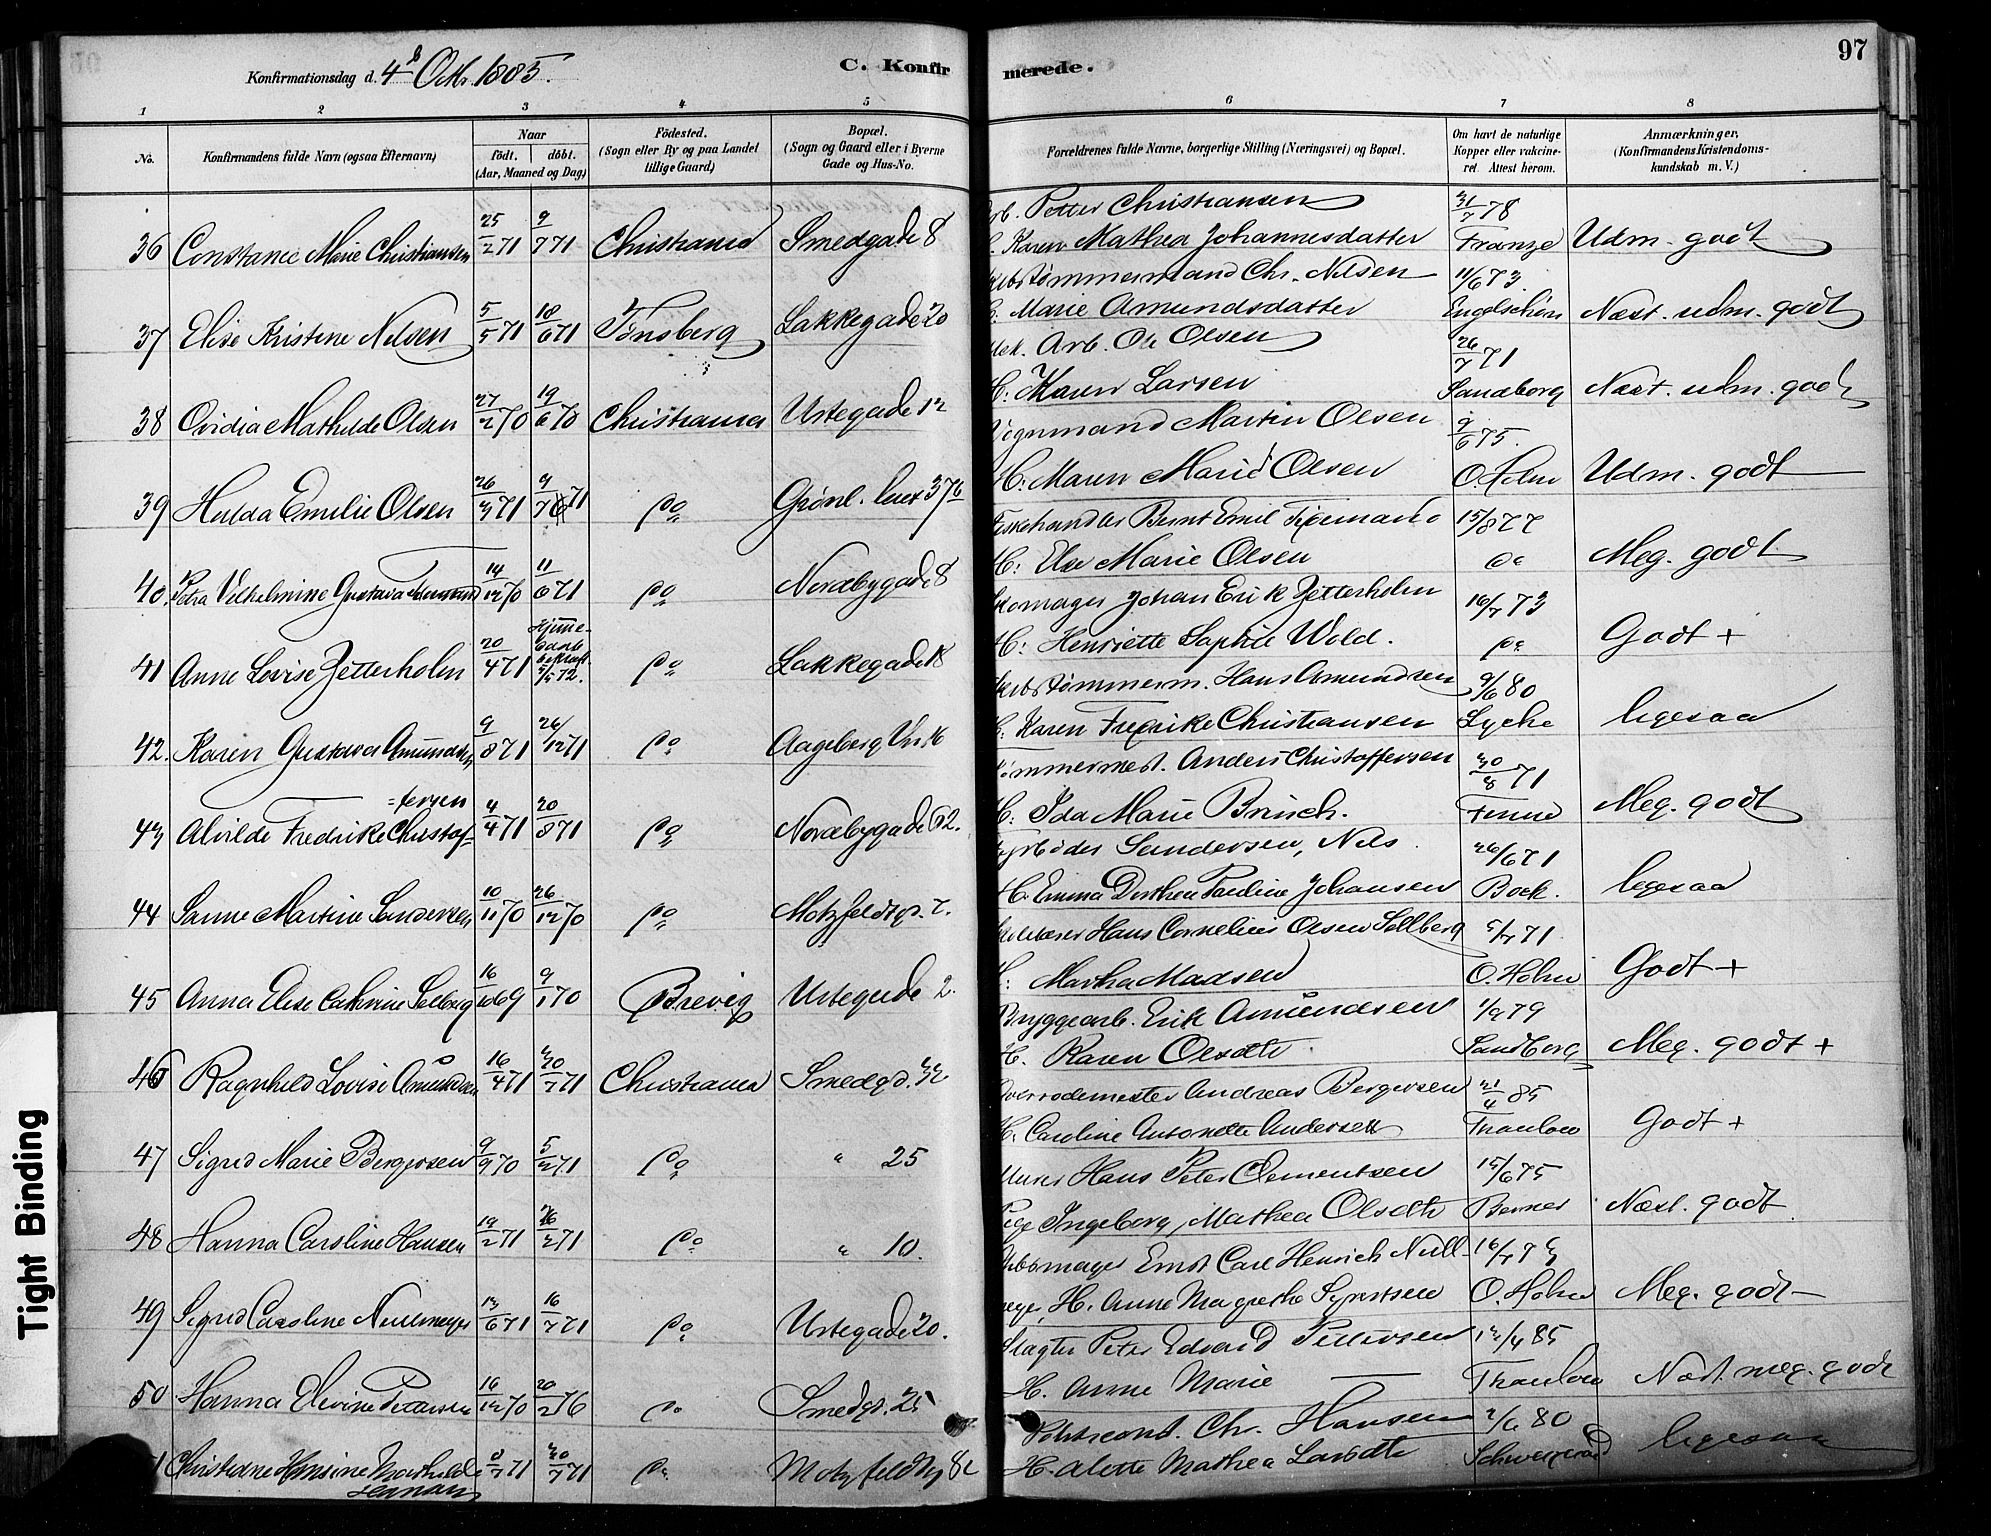 97
Konfirmationsdag d. 4de Oktr. 1885.
C. Konfirmerede.
1 2 3 4 5 6 7 8
No.
Konfirmandens fulde Navn (ogsaa Efternavn)
Naar
födt. döbt.
(Aar, Maaned og Dag)
Födested.
(Sogn eller By og paa Landet
tillige Gaard)
Bopæl.
(Sogn og Gaard eller i Byerne
Gade og Hus-No.
Forældrenes fulde Navne, borgerlige Stilling (Næringsvei) og Bopæl.
Om havt de naturlige
Kopper eller vakcine-
ret. Attest herom.
Anmærkninger.
(Konfirmandens Kristendoms-
kundskab m. V.)
36 Constance Marie Christiansen 25/2 71 9/7 71 Christiania Smedgade 8
Petter Christiansen 31/7 78
Karen Mathea Johannesdatter Udm. godt
37 Elise Kristine Nilsen 5/5 71 18/6 71 Tönsberg Lakkegade 20
tömmermand Chr. Nilsen 11/6 73
Marie Amundsdatter Engelschön Næst. udm. godt
38 Ovidia Mathilde Olsen 27/2 70 19/6 70 Christiania Urtegade 12
Arb. Ole Olsen 26/7 71
H: Karen Larsen Sandborg Næst. udm. godt
39 Hulda Emilie Olsen 26/3 71 9/7 71 do Grönl. leret 37b
Vognmand Martin Olsen 9/6 75.
H: Maren Marie Olsen O. Holm Udm. godt
40. Petra Vilhelmine Gustava 14/12 70 11/6 71 do Nordbygade 8
Fiskehandler Bernt Emil 15/8 77
H: Else Marie Olsen do Meg. godt
41 Anne Lovise Zetterholm 20/4 71 Hjemme-
daab
bekræft.
5/5 72. do Lakkegade 18
Skomager Johan Erik Zetterholm 16/7 73
H: Henriette Sophie Wold. do Godt +
42. Karen Gustava Amundsen 9/8 71 26/12 71 do Aageberg Vn. 16
tömmerm. Hans Amundsen 9/6 80
Karen Fredrike Christiansen Lyche ligesaa
43 Alvilde Fredrike Christof-
=fersen 4/4 71 20/8 71 do Nordbygade 62.
Tömmermest. Anders Christoffersen 30/8 71
H: Ida Marie Brinch. Meg. godt
44 Sanne Martine Sandersen 10/11 70 26/12 70 do Motzfeldtgd. 7.
Fyrböder Sandersen, Nils 26/6 71
H. Emma Dorthea Pauline Johansen Boek. ligesaa
45 Anna Elise Cathrine Solberg 16/10 69 9/1 70 Brevig Urtegade 2.
Hans Cornelius Olsen Sollberg 5/7 71
Martha Madsen O. Holm Godt +
46 Ragnhild Lovise Amundsen 16/4 71 30/7 71 Christiania Smedgd. 32
Bryggearb. Erik Amundsen 1/9 79
H. Karen Olsdtr Sandberg Meg. godt +
47 Sigrid Marie Bergersen 9/9 70 5/3 71 do " 25
Overrodemester Andreas Bergersen 21/4 85
H. Caroline Antonette Andersen Thaulow Godt +
48 Hanna Caroline Hansen 19/2 71 do " 10.
Murer Hans Peter Clementsen 15/6 75
Pige Ingeborg Mathea Olsdtr Berner Næst. godt
49 Sigrid Caroline Nullmeyer 13/6 71 16/7 71 do Urtegade 20.
Ernst Carl Henrich Null- 16/7 73
meyer, H. Anne Magrethe Syvertsen O. Holm Meg. godt
50 Hanna Elevine Pettersen 16/12 70 20/2 76 do Smedgd. 25
Slagter Peter Edvard Pettersen 13/4 85
H. Anne Marie — Thaulow Næst. meg. godt
Christiane Hansine Mathilde
Hansen 8/7 71 30/7 71 do Motzfeldtg 8c
Politicont. Chr. Hansen 2/6 80
H. Alette Mathea Larsdtr ligesaa
Tight Binding